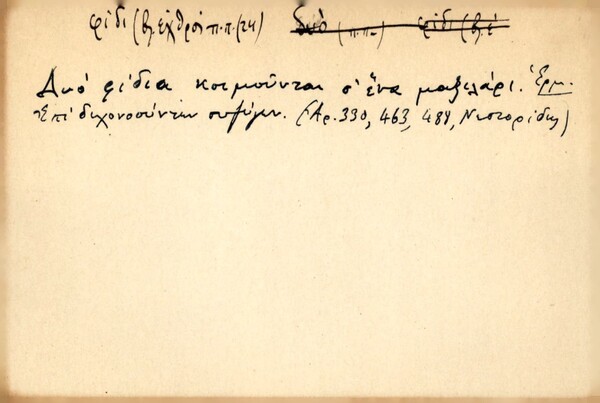 φίδι (βλ. ἐχθροί π.π. (24) δυό (π.π. φίδι (βλ. ἐ
Δυό φίδια κοιμοῦνται σ' ἕνα μαξιλάρι. Ἑρμ.
Ἐπί διχονοούντων συζύγων. (Ἀρ. 330, 463, 488, Νεστορίδης)